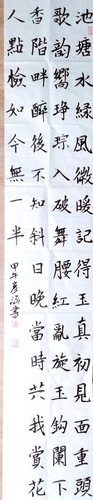 池塘水緑風微暖記得玉真初見面重頭
歌韻響琤琮入破舞腰紅亂旋玉鈎闌下
香階畔醉後不知斜日晚當時共我賞花
人點檢如今無一半
甲午 書